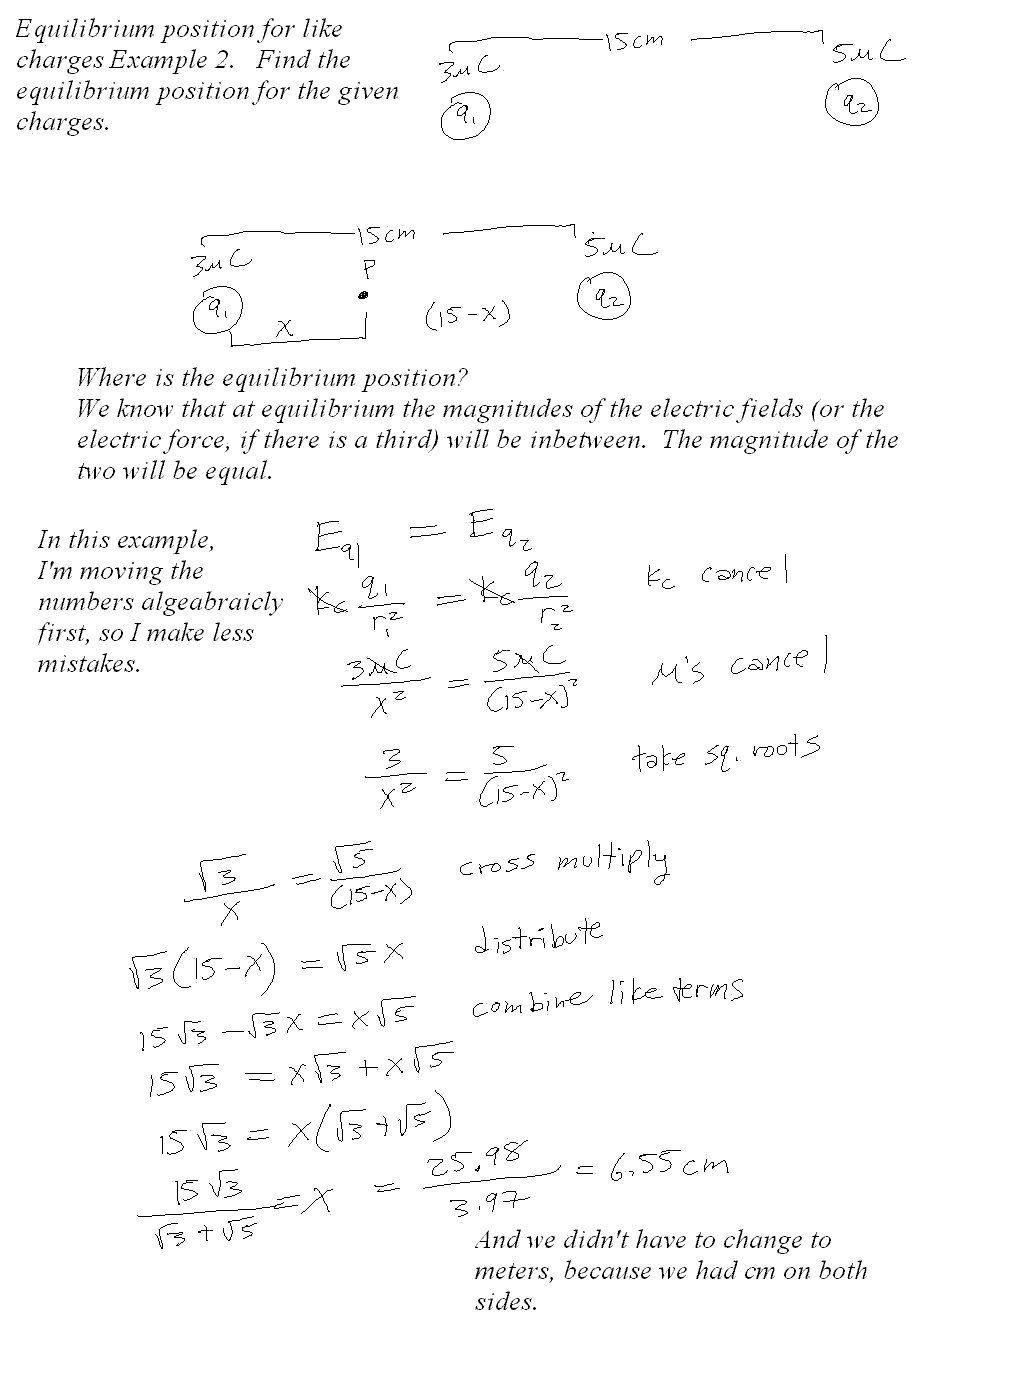 Equilibrium position for like
charges Example 2. Find the
equilibrium position for the given
charges.
15cm
3μC
5μC
q₁
q₂
15cm
3μC
P
5μC
q₁
q₂
x
(15-x)
Where is the equilibrium position?
We know that at equilibrium the magnitudes of the electric fields (or the
electric force, if there is a third) will be inbetween. The magnitude of the
two will be equal.
In this example,
I'm moving the
numbers algeabraicly
first, so I make less
mistakes.
E_q1 = E_q2
kc q₁/r₁² = kc q₂/r₂² kc cancel
3μC/x² = 5μC/(15-x)² μ's cancel
3/x² = 5/(15-x)² take sq. roots
√3/x = √5/(15-x) cross multiply
√3(15-x) = √5 x distribute
15√3 - √3x = x√5 combine like terms
15√3 = x√3 + x√5
15√3 = x(√3+√5)
15√3/(√3+√5) = x = 25.98/3.97 = 6.55cm
And we didn't have to change to
meters, because we had cm on both
sides.